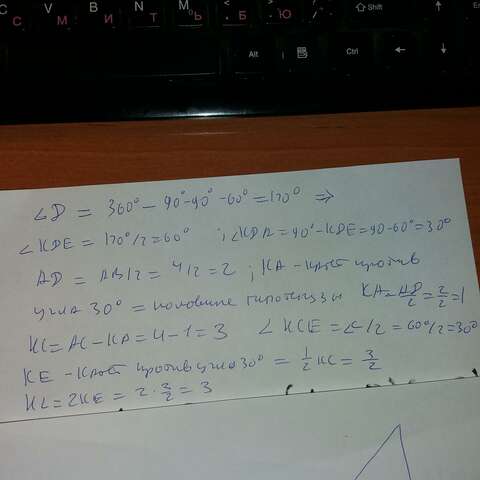 C V B N M < >
С М И Т Ь Б Ю
Shift
Alt Ctrl
∠D = 360° – 90° - 90° - 60° = 120° ⇒
∠KDE = 120°/2 = 60° ; ∠KDA = 90° - KDE = 90 - 60° = 30°
AD = AB/2 = 4/2 = 2 ; KA - катет против
угла 30° = половине гипотенузы KA = AD/2 = 2/2 = 1
KC = AC - KA = 4 - 1 = 3 ∠KCE = ∠C/2 = 60°/2 = 30°
KE - катет против угла 30° = 1/2 KC = 3/2
KL = 2KE = 2 · 3/2 = 3